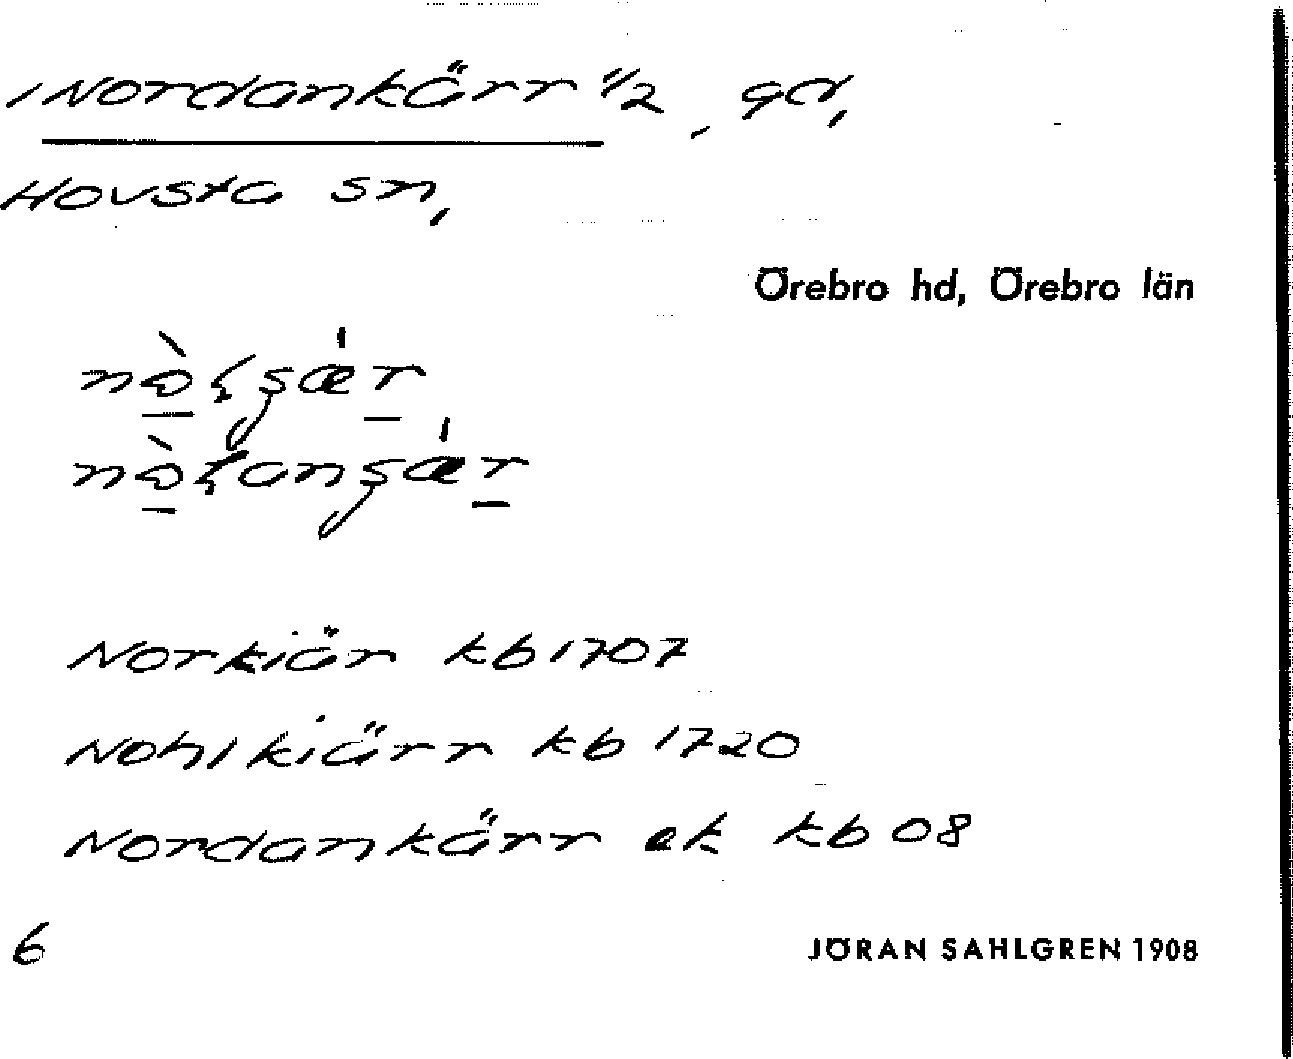 Nordankärr 1/2, gd,
Hovsta sn,
Örebro hd, Örebro län
Norkiär kb 1707
Nohlkiärr kb 1720
Nordankärr ek kb 08
6
JÖRAN SAHLGREN 1908